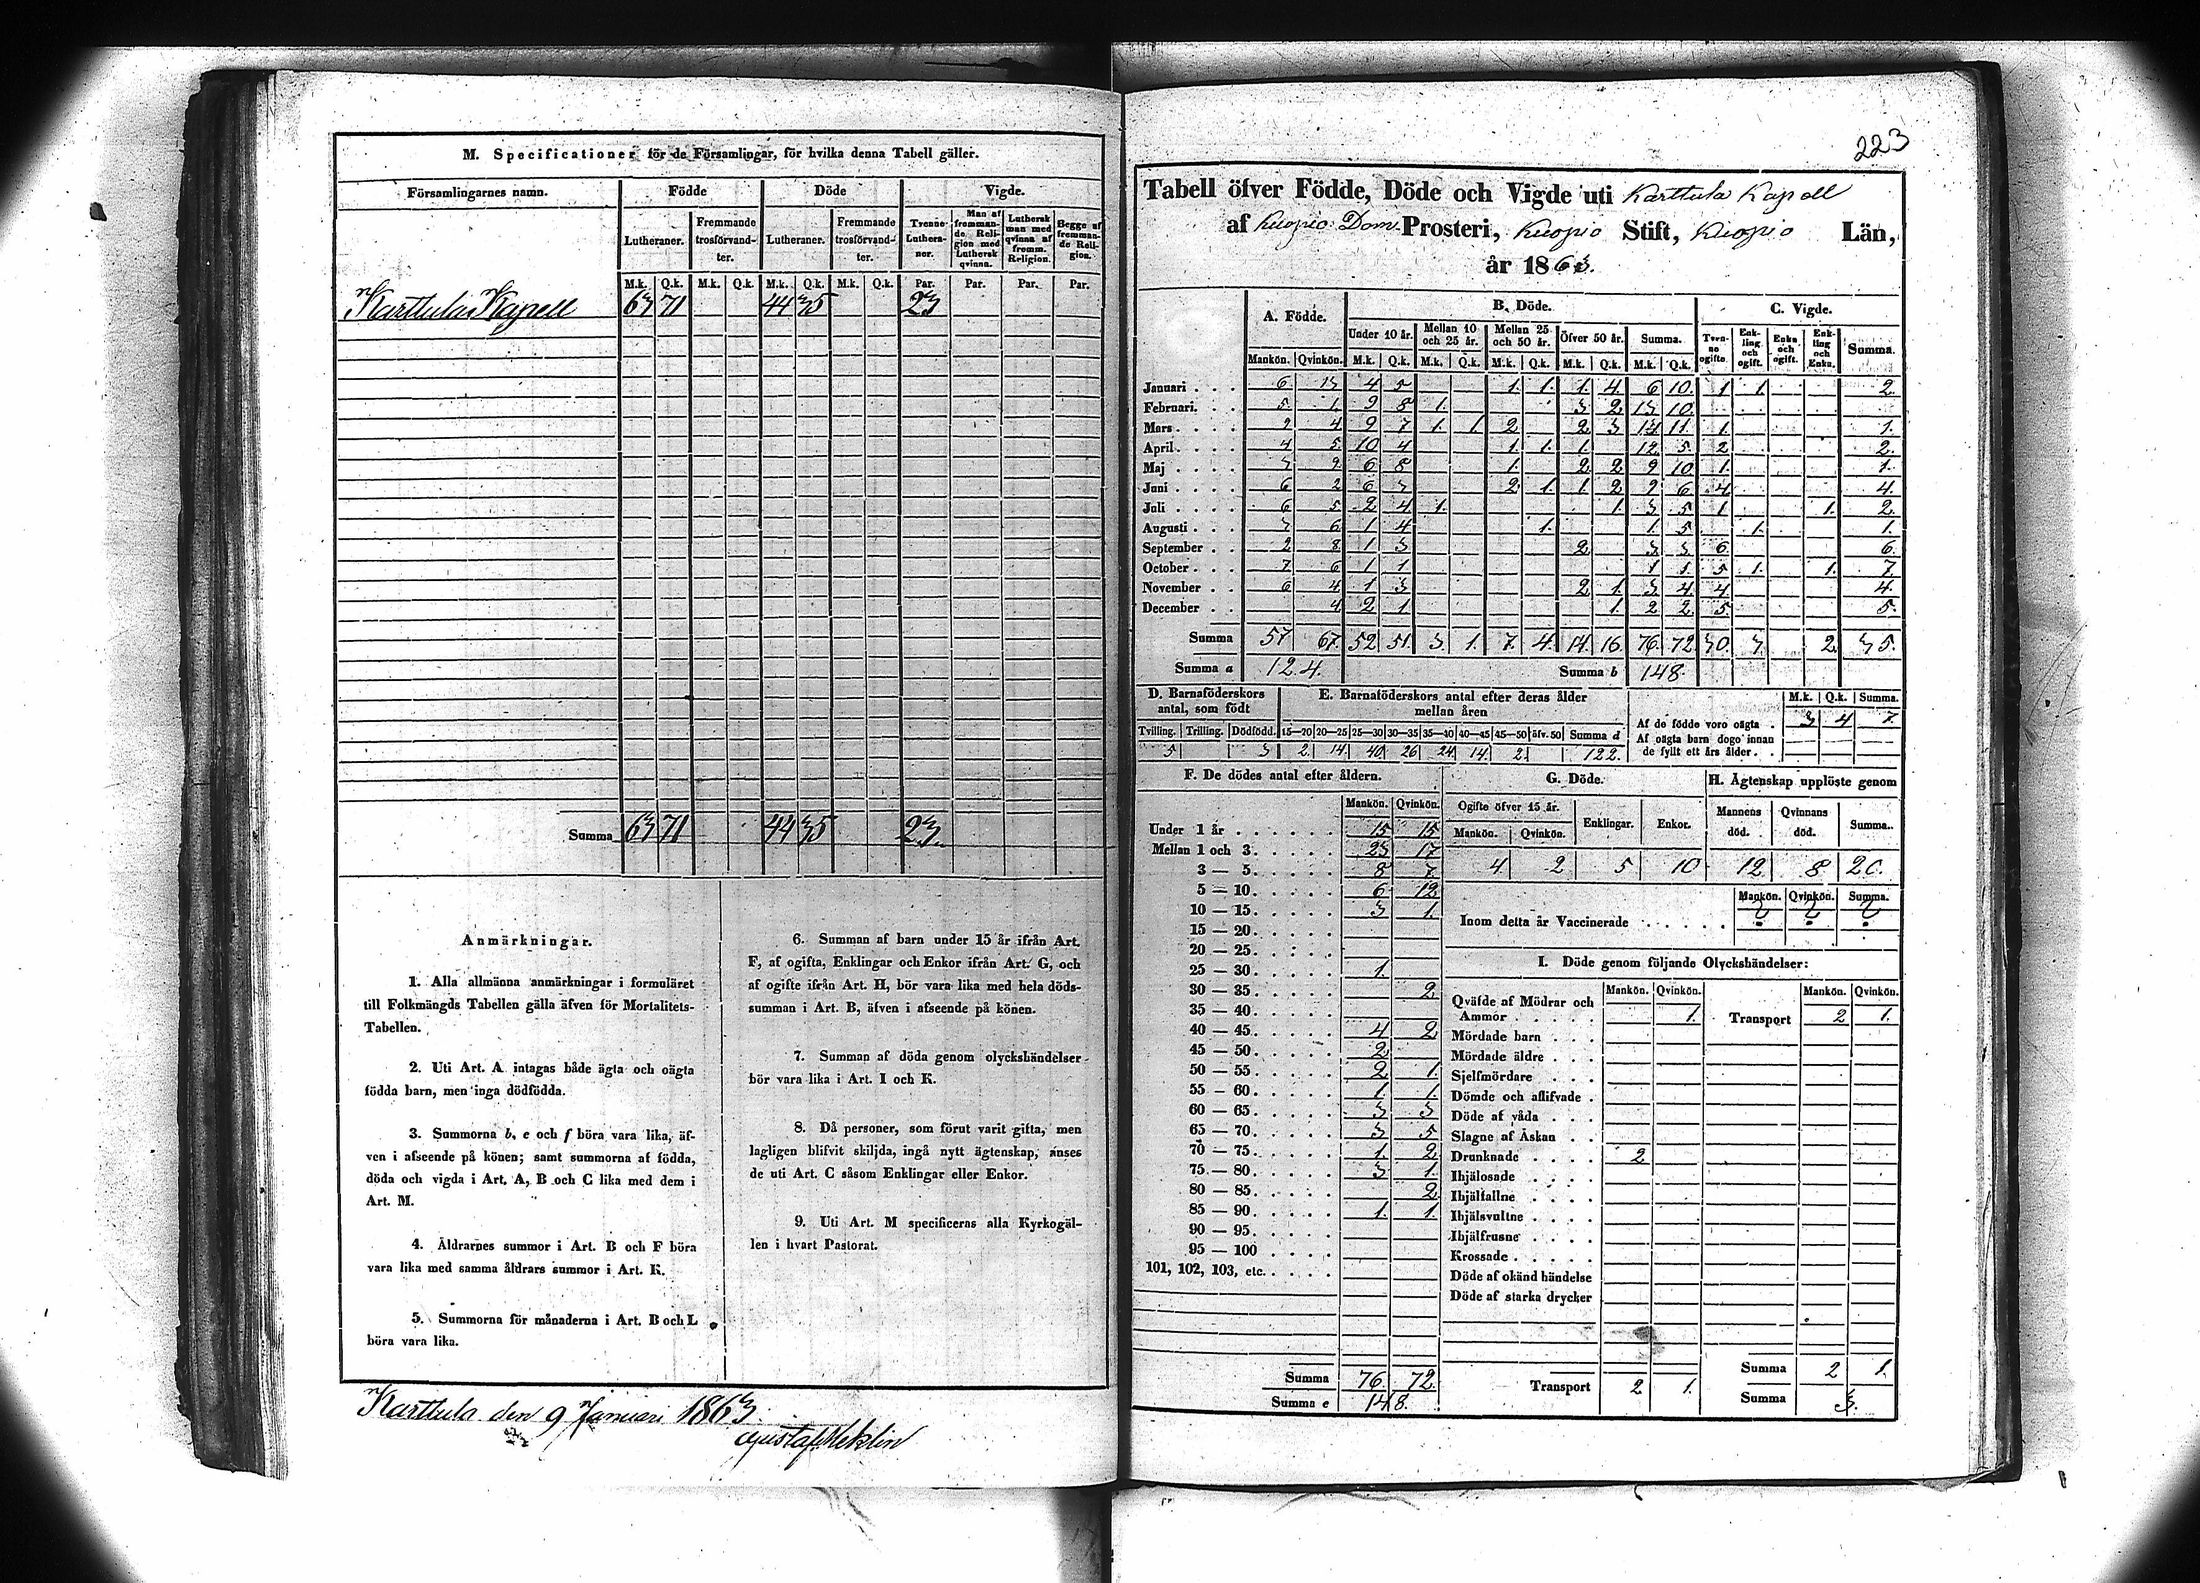 M. Specificationer för de Församlingar, för hvilka denna Tabell gäller.
Församlingarnes namn. Födde Döde Vigde.
Lutheraner. Fremmande trosförvandter. Lutheraner. Fremmande trosförvandter. Trenne Lutheraner. Man af fremmande Religion med Luthersk qvinna. Luthersk man med qvinna af fremm. Religion. Begge af fremmande Religion.
M.k. Q.k. M.k. Q.k. M.k. Q.k. M.k. Q.k. Par. Par. Par. Par.
Karttula Kapell 63 71 44 35 23
Summa 63 71 44 35 23.
Anmärkningar.
1. Alla allmänna anmärkningar i formuläret
till Folkmängds Tabellen gälla äfven för Mortalitets-
Tabellen.
2. Uti Art. A intagas både ägta och oägta
födda barn, men inga dödfödda.
3. Summorna b, e och f böra vara lika, äf-
ven i afseende på könen; samt summorna af födda,
döda och vigda i Art. A, B och C lika med dem i
Art. M.
4. Åldrarnes summor i Art. B och F böra
vara lika med samma åldrars summor i Art. K.
5. Summorna för månaderna i Art. B och L
böra vara lika.
6. Summan af barn under 15 år ifrån Art.
F, af ogifta, Enklingar och Enkor ifrån Art. G, och
af ogifte ifrån Art. H, bör vara lika med hela döds-
summan i Art. B, äfven i afseende på könen.
7. Summan af döda genom olyckshändelser
bör vara lika i Art. I och K.
8. Då personer, som förut varit gifta, men
lagligen blifvit skiljda, ingå nytt ägtenskap, anses
de uti Art. C såsom Enklingar eller Enkor.
9. Uti Art. M specificeras alla Kyrkogäl-
len i hvart Pastorat.
Karttula den 9 Januari 1863.
Gustaf Meklin
223
Tabell öfver Födde, Döde och Vigde uti Karttula Kapell
af Kuopio Dom. Prosteri, Kuopio Stift, Kuopio Län,
år 1863.
A. Födde. B. Döde. C. Vigde.
Under 10 år. Mellan 10 och 25 år. Mellan 25 och 50 år. Öfver 50 år. Summa. Tvenne ogifte. Enkling och ogift. Enka och ogift. Enkling och Enka. Summa.
Mankön. Qvinkön. M.k. Q.k. M.k. Q.k. M.k. Q.k. M.k. Q.k. M.k. Q.k.
Januari . . . 6 13 4 5 1. 1. 1. 4 6 10. 1 1. 2.
Februari. . . 5 1. 9 8 1. 3 2 13 10.
Mars . . . . 9 4 9 7 1. 1 2 2 3 11. 1. 1.
April . . . . 4 5 10 4 1 1. 1. 12 5. 2 2.
Maj . . . . 9 6 8 1. 2 2 9 10 1. 1.
Juni . . . . 6 2 6 3 2 1. 1. 2 9 6 4 4.
Juli . . . . 6 5 2 4 1. 1 3 5 1 1. 2.
Augusti . . . 6 1 4 1. 1. 5 1. 1.
September . . 2 8 1 3 2 3 3 6. 6.
October . . . 7 6 1 1 1 1. 5 1. 1. 7.
November . . 6 4 1 3 2 1. 3 4 4 4.
December . . 4 2 1 1. 2 2. 5. 5.
Summa 57 67. 52 51. 3. 1. 7. 4. 14. 16. 76. 72. 30. 3 2. 35.
Summa a 124. Summa b 148.
D. Barnaföderskors antal, som födt E. Barnaföderskors antal efter deras ålder mellan åren M.k. Q.k. Summa.
Tvilling. Trilling. Dödfödd. 15—20 20—25 25—30 30—35 35—40 40—45 45—50 öfv. 50 Summa d
5 3 2. 14. 40. 26 24. 14. 2. 122.
Af de födde voro oägta . 3 4 7.
Af oägta barn dogo innan
de fyllt ett års ålder . .
F. De dödes antal efter åldern.
Mankön. Qvinkön.
Under 1 år . . . . . . 15 15
Mellan 1 och 3. . . . . 23 17
3 — 5. . . . . 8 7.
5 — 10. . . . . 6 12
10 — 15. . . . . 3 1.
15 — 20. . . . .
20 — 25. . . . .
25 — 30. . . . . 1.
30 — 35. . . . . 2
35 — 40. . . . .
40 — 45. . . . . 4 2
45 — 50. . . . . 2
50 — 55. . . . . 2 1.
55 — 60. . . . . 1. 1.
60 — 65. . . . . 3 3
65 — 70. . . . . 3 5
70 — 75. . . . . 1. 2
75 — 80. . . . . 3 1.
80 — 85. . . . . 2
85 — 90. . . . . 1. 1.
90 — 95. . . . .
95 — 100 . . . .
101, 102, 103, etc. . . . .
Summa 76. 72.
Summa e 148.
G. Döde. H. Ägtenskap upplöste genom
Ogifte öfver 15 år. Enklingar. Enkor. Mannens död. Qvinnans död. Summa.
Mankön. Qvinkön.
4 2 5 10 12 8 20.
Mankön. Qvinkön. Summa.
Inom detta år Vaccinerade . . . . . ? ? ?
I. Döde genom följande Olyckshändelser:
Mankön. Qvinkön. Mankön. Qvinkön.
Qväfde af Mödrar och
Ammor . . . . . 1. Transport 2 1.
Mördade barn . . .
Mördade äldre . . .
Sjelfmördare . . .
Dömde och aflifvade .
Döde af våda . . .
Slagne af Åskan . .
Drunknade . . . . 2
Ihjälosade . . . .
Ihjälfallne . . . .
Ihjälsvultne . . . .
Ihjälfrusne . . . .
Krossade . . . . .
Döde af okänd händelse
Döde af starka drycker
Summa 2 1.
Transport 2 1.
Summa 3.